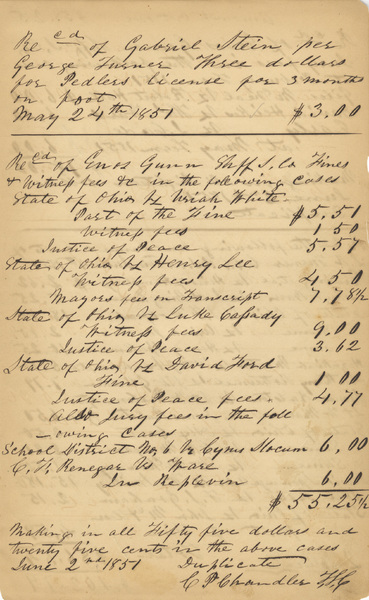 Recd of Gabriel Stein per
George Turner Three dollars
for Pedlers license for 3 months
on foot
May 24th 1851 $3.00
Recd of Enos Gunn Shff S. Co Fines
& Witness fees &c in the following cases
State of Ohio Vs Uriah White
Part of the Fine $5.51
Witness fees 1 50
Justice of Peace 5.57
State of Ohio Vs Henry Lee
Witness fees 4 50
Mayors fees on Transcript 7.78½
State of Ohio Vs Luke Cassady
Witness fees 9.00
Justice of Peace 3.62
State of Ohio Vs David Ford
Fine 1 00
Justice of Peace fees. 4.77
Also Jury fees in the foll
-owing cases
School District No 6 Vs Cyrus Slocum 6.00
C. F. Renegar Vs Ware
In Replevin 6.00
$55.25½
Making in all Fifty five dollars and
twenty five cents in the above cases
June 2nd 1851 Duplicate
Chandler